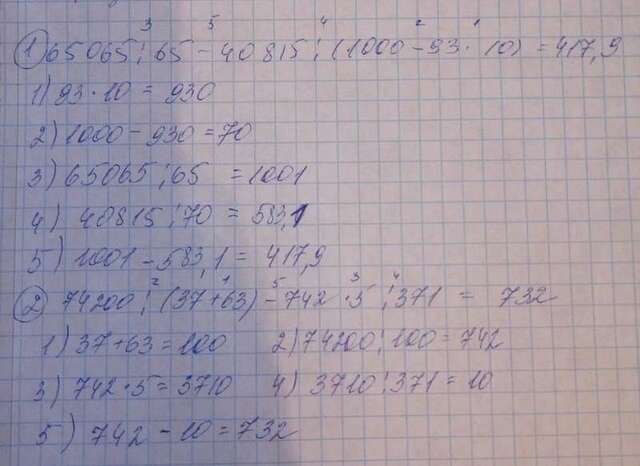 3 5 4 2 1
1 65065 : 65 - 40815 : (1000 - 93 · 10) = 417,9
1) 93 · 10 = 930
2) 1000 - 930 = 70
3) 65065 : 65 = 1001
4) 40815 : 70 = 583,1
5) 1001 - 583,1 = 417,9
2 1 5 3 4
2 74200 : (37 + 63) - 742 · 5 : 371 = 732
1) 37 + 63 = 100 2) 74200 : 100 = 742
3) 742 · 5 = 3710 4) 3710 : 371 = 10
5) 742 - 10 = 732